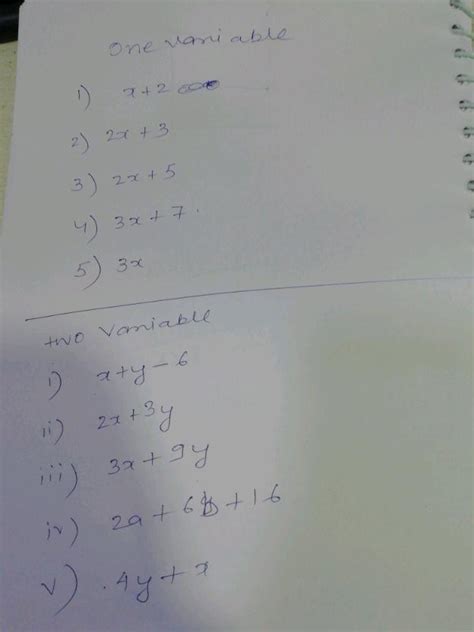 one variable
1) x+2
2) 2x+3
3) 2x+5
4) 3x+7.
5) 3x
two variable
i) x+y-6
ii) 2x+3y
iii) 3x+9y
iv) 2a+6b+16
v) .4y+x